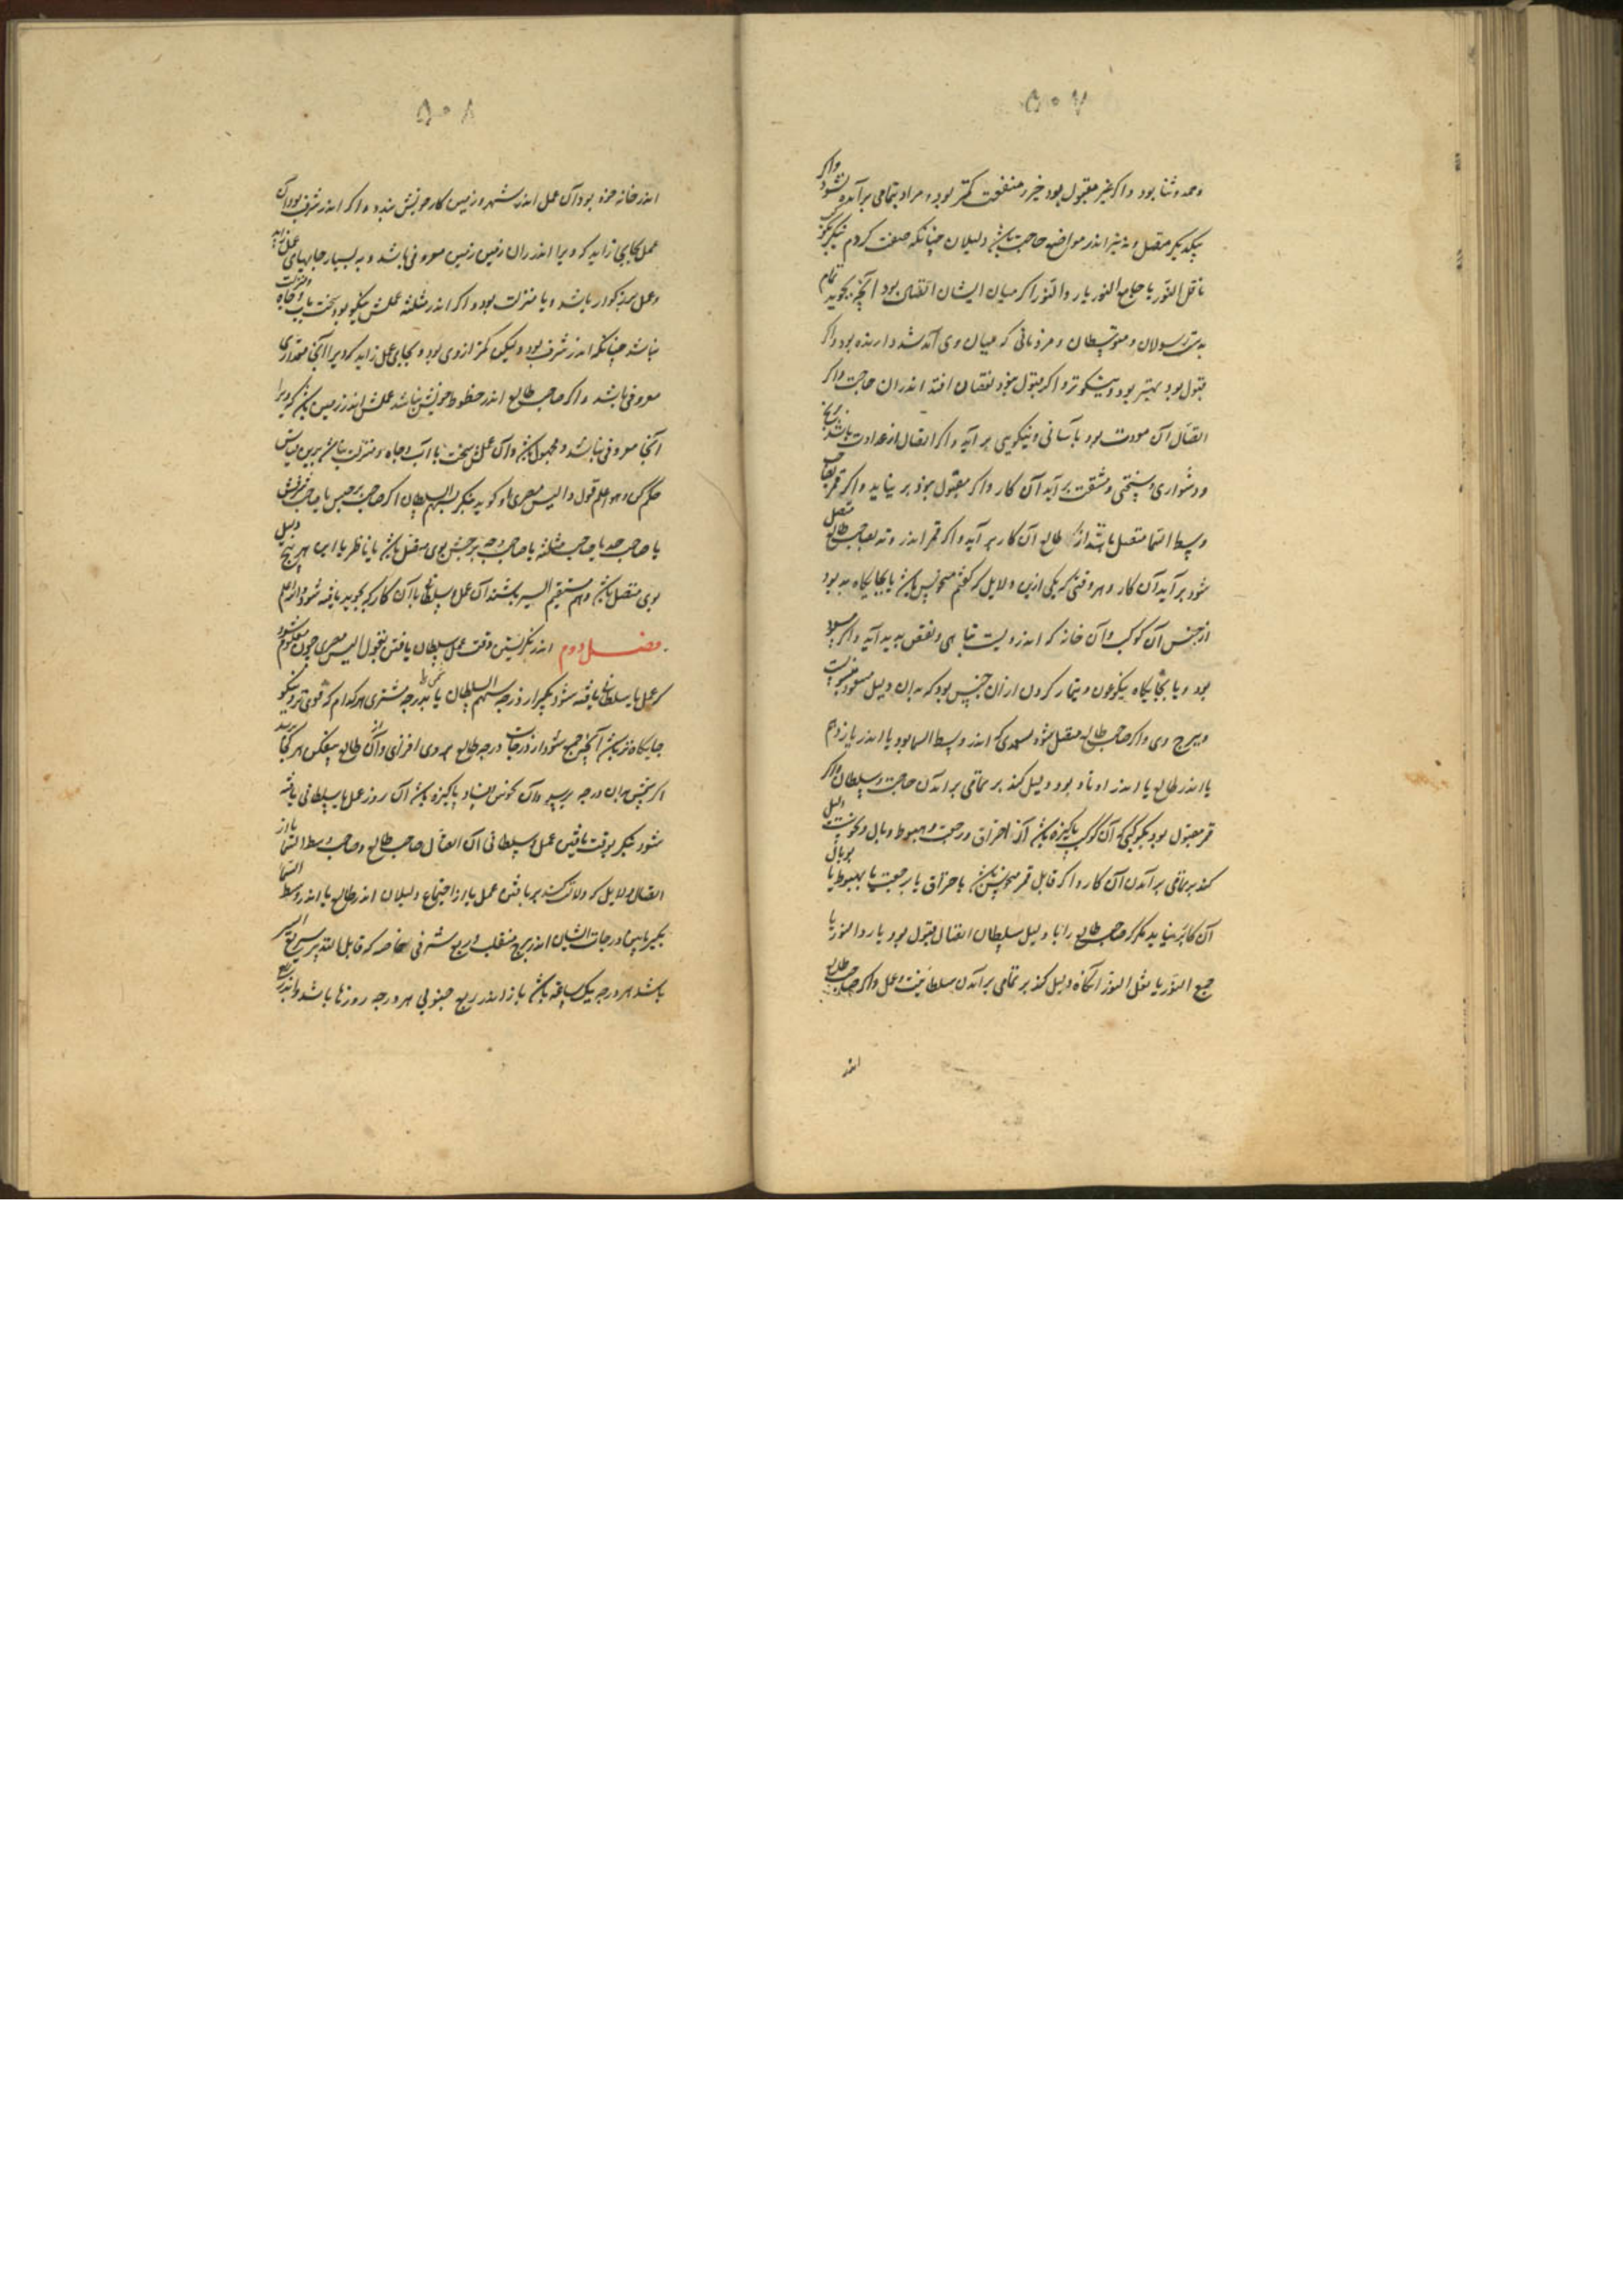 ۵۰۷
و حمد و ثنا بود و اکر غیر مقبول بود خیر و منفعت کمتر بود و مراد بتمامی برآمده نشود واکر
بیکدیکر متصل و نه نیز اندر مواضع حاجت باشد دلیلان چنانکه صفت کردم بنکر
ناقل النور یا جامع النور یا رد النور اکر میان ایشان اتصال بود آنچه بجوید تمام
بدست رسولان و متوسطان و مردمانی که میان وی آمد شد دارنده بود واکر
قبول بود بهتر بود و نیکوتر و اکر قبول نبود نقصان افتد اندران حاجت واکر
اتصال آن مودت بود بآسانی و نیکویی برآید و اکر اتصال از عداوت باشد
و دشواری و سختی و مشقت برآید آن کار واکر مقبول نبود برنیاید و اکر قمر
وسط السما متصل باشد از طالع آن کار برآید و اکر قمر اندر وتد بصاحب طالع متصل
شود برآید آن کار و هر وقتی که یکی ازین دلایل که کفتم منحوس باشد یا بجایکاه بد بود
از جنس آن کوکب و آن خانه که اندرویست تباهی و نقص پدید آید واکر مسعود
بود و یا بجایکاه نیکو بودن و تیمار کردن ازان جنس بود که بدان دلیل مسعود منسوبست
و برج وی واکر صاحب طالع متصل شود بسعدی که اندر وسط السما بود یا اندر یازدهم
یا اندر طالع یا اندر اوتاد بود دلیل کند بر تمامی برآمدن حاجت و سلطان واکر
قمر مقبول بود بکوکبی که آن کوکب پاکیزه باشد از احتراق و رجعت و هبوط و وبال و نحوست دلیل
کند بر تمامی برآمدن آن کار واکر قابل قمر منحوس باشد باحتراق یا رجعت یا بهبوط یا بوبال
آن کار برنیاید مکر که صاحب طالع را با دلیل سلطان اتصال قبول بود یا رد النور یا
جمع النور یا نقل النور آنکاه دلیل کند بر تمامی برآمدن سلطانیت و عمل واکر صاحب طالع
اندر
۵۰۸
اندر خانه خود بود آن عمل اندر شهر و زمین کار خویش بیند و اکر اندر شرف بود آن
عمل بجایی زاید که ویرا اندران زمین معروفی باشد و به بسیار جایهای عمل زاید
و عمل بزرکوار باشد و با منزلت بود و اکر اندر مثلثه عملش نیکو بود سخت با آب و جاه و منزلت
نباشد چنانکه اندر شرف بود ولیکن کمتر ازوی بود و بجای عمل زاید که ویرا آنجا مقداری
معروفی باشد و اکر صاحب طالع اندر حظوظ خویش نباشد عملش اندر زمین باشد که ویرا
آنجا معروفی نباشد و مجهول باشد و آن عملش سخت با آب و جاه و منزلت نباشد برین قیاس
حکم کن و هو اعلم قول والیس مصری او کوید بنکر بسهم السلطان اکر صاحب برجش یا صاحب شرفش
یا صاحب حد یا صاحب مثلثه یا صاحب وجه برجش بوی متصل باشد یا ناظر یا این هر پنج دلیل
بوی متصل باشد و هم مستقیم السیر باشند آن عمل سلطانی یا آن کار که بجوید یافته شود والله اعلم
فصل دوم اندر نکریستن وقت عمل سلطان یافتن بقول والیس مصری چون معلوم شود
که عمل یا سلطانی یافته شود بکیر از درجه سهم السلطان یا بدرجه مشتری هر کدام که قوی تر و نیکو
جایکاه تر باشد آنچه جمع شود از درجات درجه طالع بروی افزای و از طالع بیفکن هر کجا برسد
اکر شمس بدان درجه برسد و آن نحوس افتاد پاکیزه باشد آن روز عمل یا سلطانی یافته
شود بنکر بوقت یافتن عمل و سلطانی آن اتصال صاحب طالع و صاحب وسط السما یا از
اتصال دلایل که دلالت کند بر یافتن عمل یا از اجتماع دلیلان اندر طالع یا اندر وسط السما
بکیر ما بین درجات ایشان اندر برج منقلب و ربع شرقی خاصه که قابل التدبیر سریع السیر
باشد هر درجه یک ساعة باشد باز اندر ربع جنوبی هر درجه روزها باشد واندر ربع